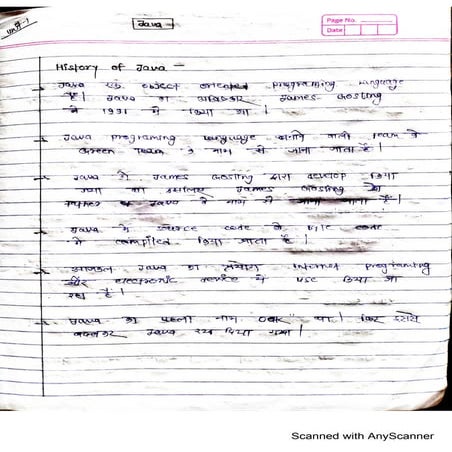 unit-1
Java
Page No.
Date
History of Java -
→ Java एक object oriented programing language
है। Java का अविष्कार James Gosling
ने 1991 में किया था।
→ Java programing language बनाने वाली Team को
Green Team के नाम से जाना जाता है।
→ Java को James Gosling द्वारा develop किया
गया था इसलिए James Gosling को
Father of Java के नाम से जाना जाता है।
→ Java में source code को Byte code
में compiled किया जाता है।
→ आजकल Java का उपयोग internet programing
और electronic में use किया जा
रहा है।
→ Java का पहला नाम "Oak" था। फिर इसको
बदलकर Java रख दिया गया।
Scanned with AnyScanner